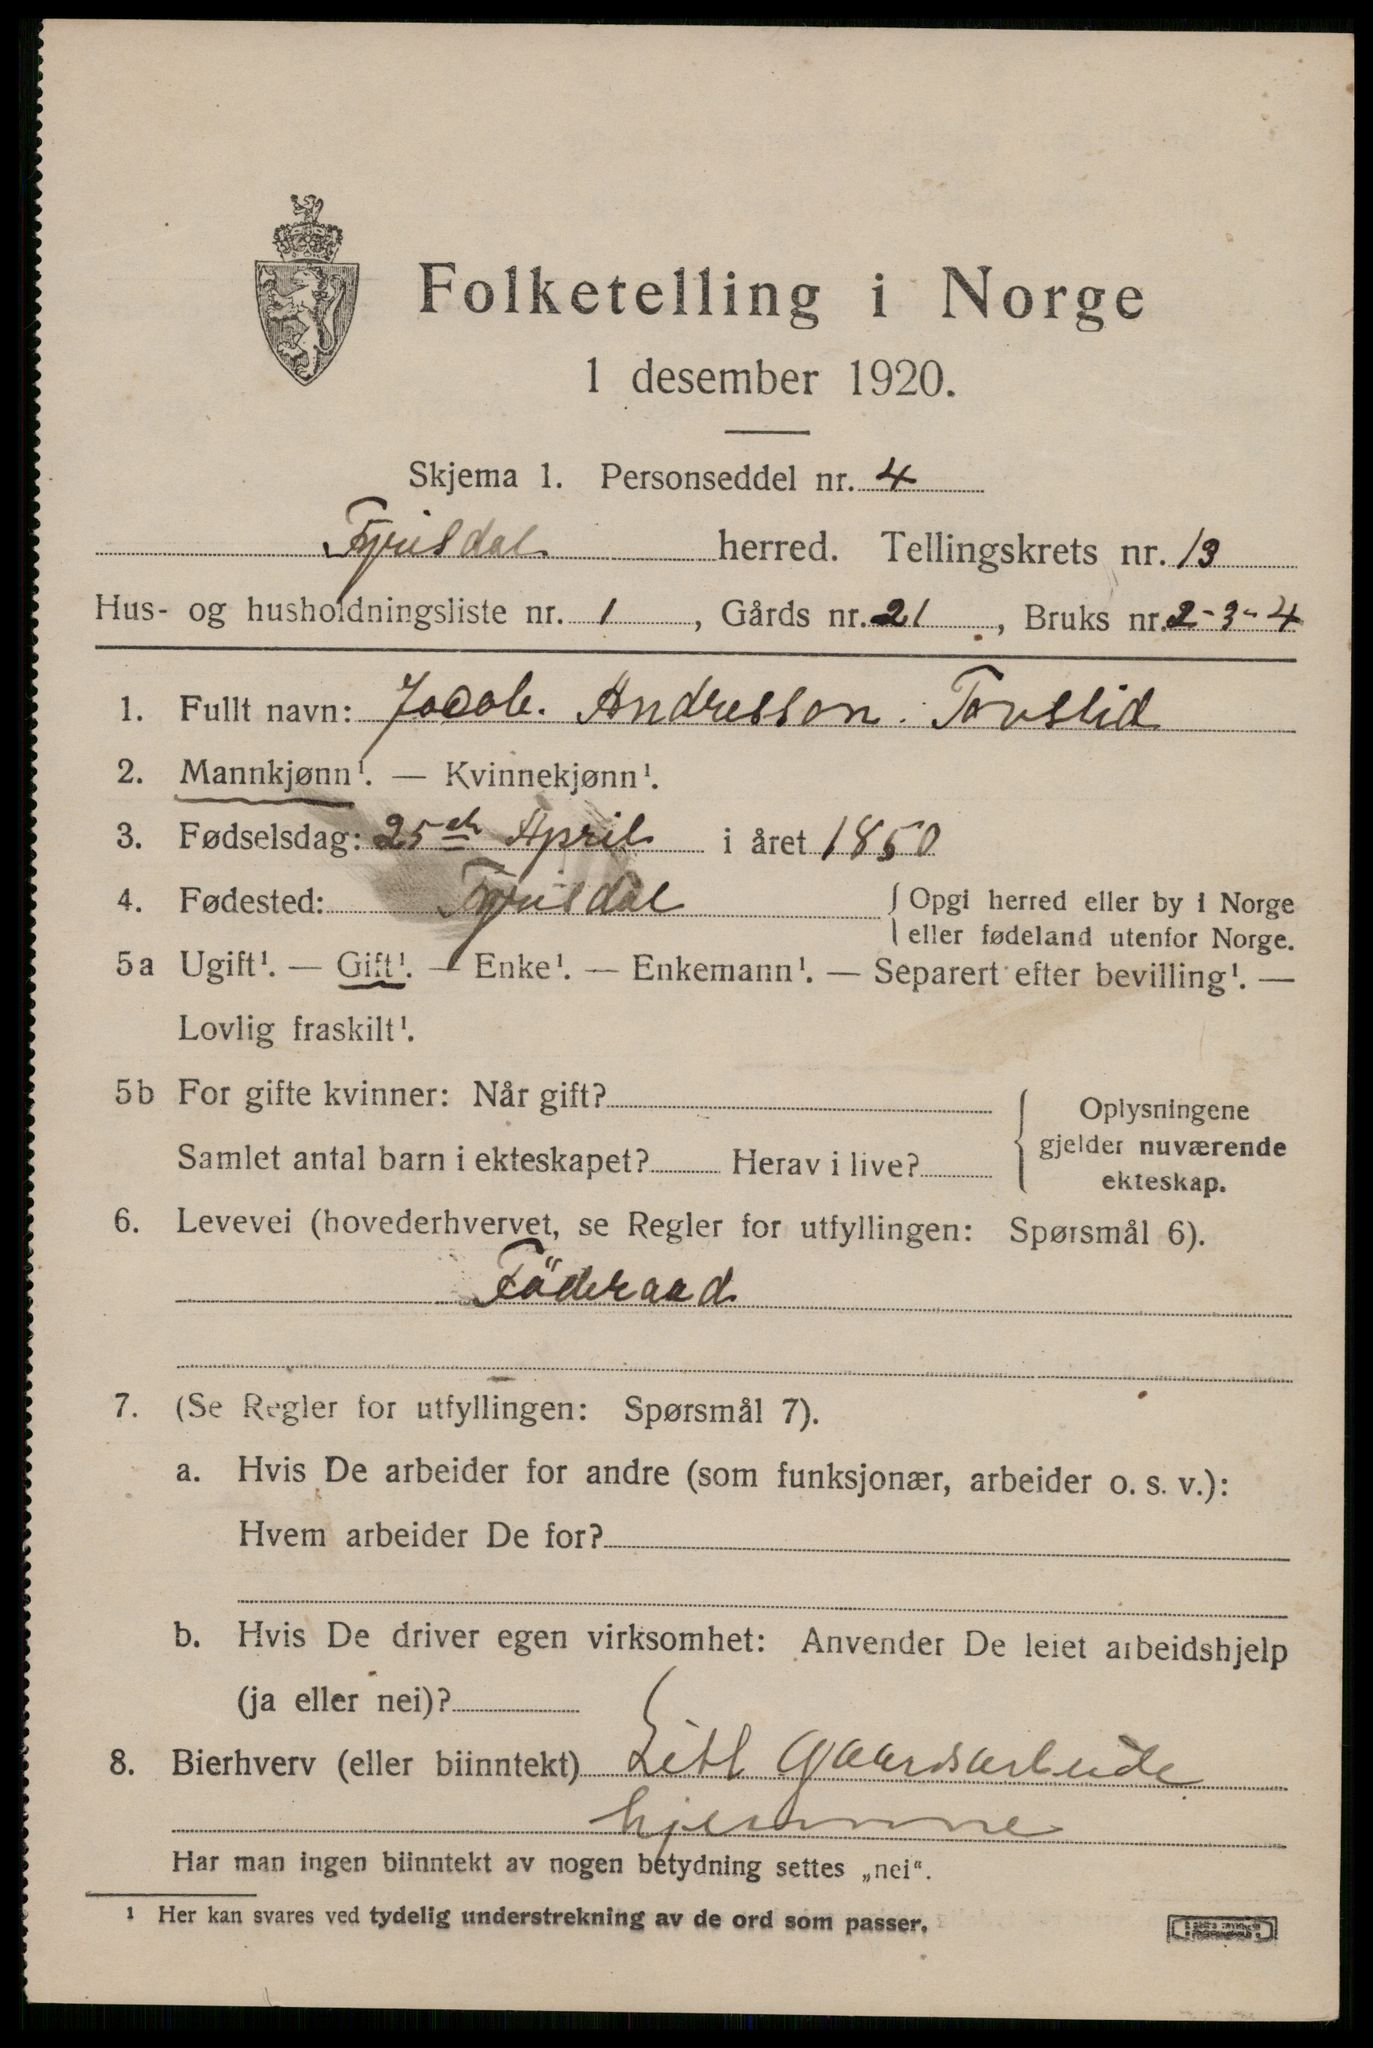 Folketelling i Norge
1 desember 1920.
Skjema 1. Personseddel nr. 4
Fyrisdal herred. Tellingskrets nr. 13
Hus- og husholdningsliste nr. 1, Gårds nr. 21, Bruks nr. 2-3-4
1. Fullt navn: Jacob. Andresson. Tovslid
2. Mannkjønn¹. — Kvinnekjønn¹.
3. Fødselsdag: 25de April i året 1850
4. Fødested: Fyrisdal { Opgi herred eller by i Norge
eller fødeland utenfor Norge.
5a Ugift¹. — Gift¹. — Enke¹. — Enkemann¹. — Separert efter bevilling¹. —
Lovlig fraskilt¹.
5b For gifte kvinner: Når gift?
Samlet antal barn i ekteskapet? Herav i live?
{ Oplysningene
gjelder nuværende
ekteskap.
6. Levevei (hovederhvervet, se Regler for utfyllingen: Spørsmål 6).
Föderaad
7. (Se Regler for utfyllingen: Spørsmål 7).
a. Hvis De arbeider for andre (som funksjonær, arbeider o. s. v.):
Hvem arbeider De for?
b. Hvis De driver egen virksomhet: Anvender De leiet arbeidshjelp
(ja eller nei)?
8. Bierhverv (eller biinntekt) Litt Gaardsarbeide
hjemme
Har man ingen biinntekt av nogen betydning settes „nei“.
1 Her kan svares ved tydelig understrekning av de ord som passer.